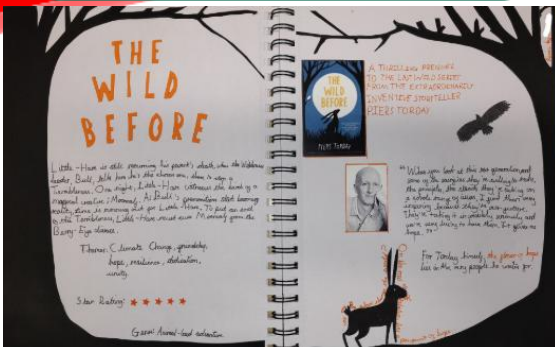 THE
WILD
BEFORE
Little-Ham is still mourning his parent's death when the Wilderness
leader, Bull, tells him he's the chosen one, done to stop a
Terribleness. One night, Little-Ham witness the birth of a
magical creature; Moonlaf. As Bull's start becoming
reality, time is running out for Little-Ham. To put an end
to the Terribleness, Little-Ham must save Moonlaf from the
Berry-Eye disease.
Themes: Climate Change, friendship,
hope, resilience, dedication,
unity.
Star Rating: ★ ★ ★ ★ ★
Genre: Animal-led
A THRILLING PREQUEL
TO THE LAST WILD SERIES
FROM THE EXTRAORDINARILY
INVENTIVE STORYTELLER
PIERS TORDAY
THE
WILD
BEFORE
PIERS TORDAY
" When you look at this new generation and
some of the they're willing to make,
the principle, the they're taking on
a whole of issues, I find them very
inspiring because they're
They're taking it so incredibly seriously and
you're very lucky to have them. It gives me
hope. "
For Torday himself, the power of hope
lies in the very people he writes for.